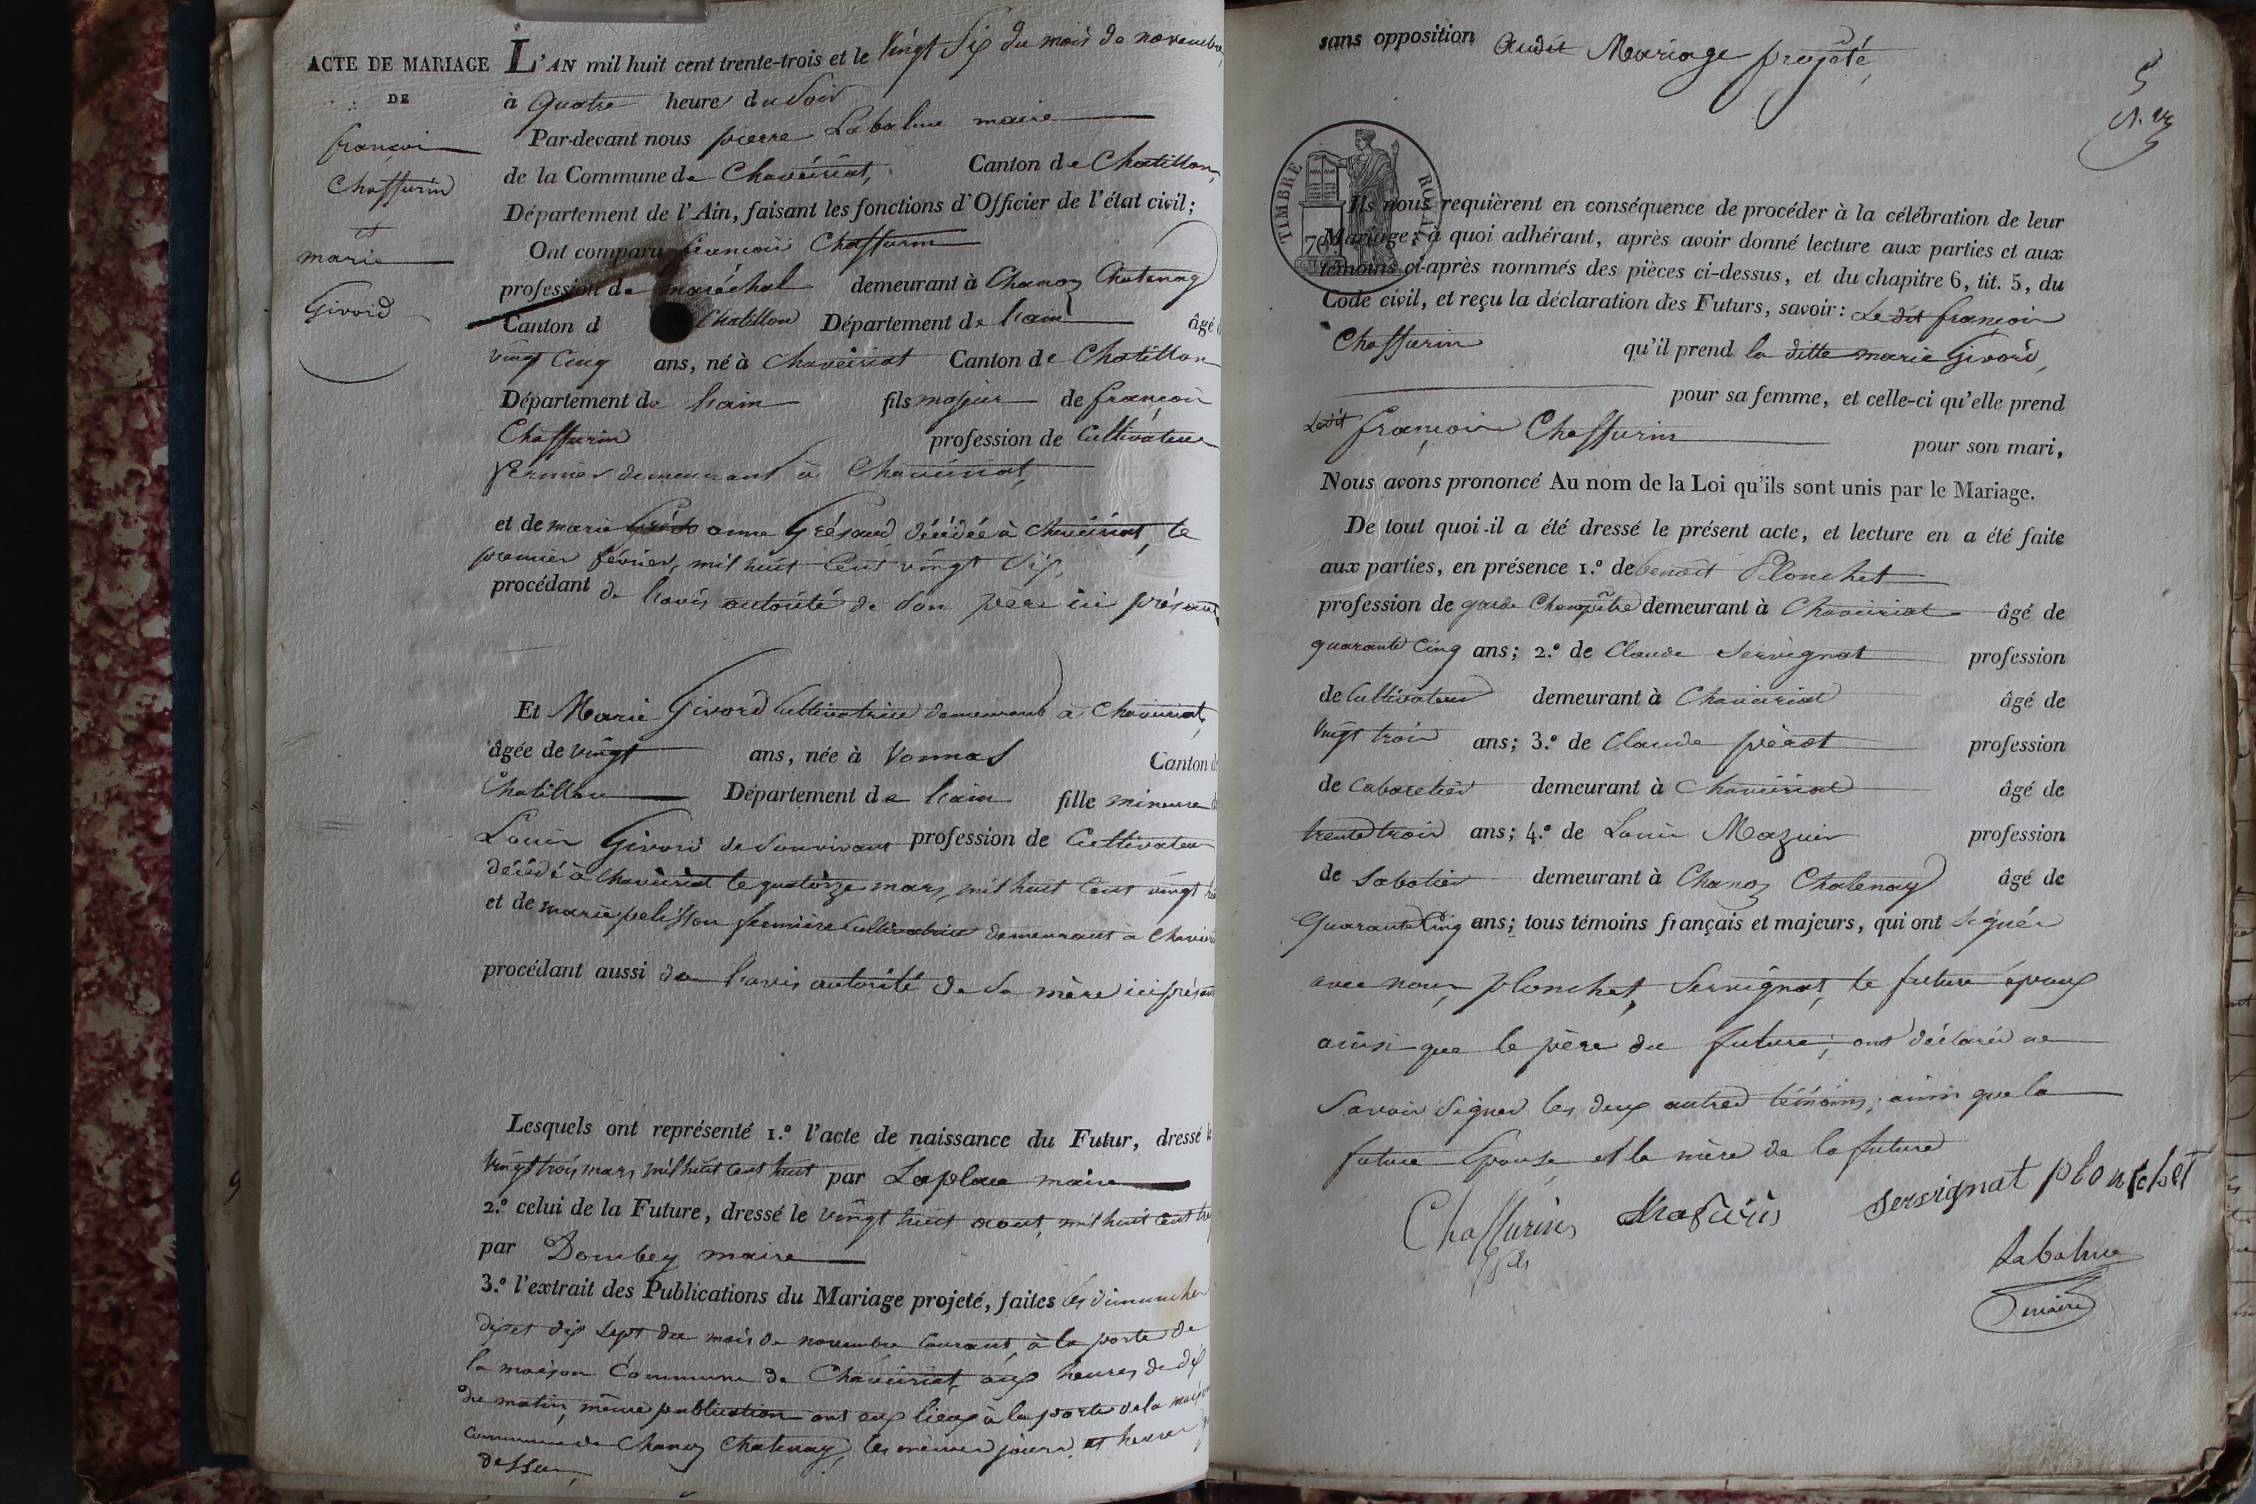 ACTE DE MARIAGE
DE
françois
Chaffurin
et
marie
Givord
L'AN mil huit cent trente-trois et le vingt Six du mois de novembre,
à quatre heures du Soir
Par-devant nous pierre Labalme maire
de la Commune de Chaveiriat, Canton de Chatillon,
Département de l'Ain, faisant les fonctions d'Officier de l'état civil;
Ont comparu françois Chaffurin
profession de maréchal demeurant à Chanoz Chatenay
Canton d Chatillon Département de Lain âgé d
vingt Cinq ans, né à Chaveiriat Canton de Chatillon
Département de Lain fils majeur de françois
Chaffurin profession de Cultivateur
fermier demeurant à Chaveiriat,
et de marie anne Grésaud décédée à Chaveiriat, le
premier février, mil huit Cent vingt Six,
procédant de Lavis autorité de Son père ici présent
Et Marie Givord Cultivatrice demeurant à Chaveiriat,
âgée de vingt ans, née à Vonnas Canton de
Chatillon Département de Lain fille mineure d
Louis Givord de Son vivant profession de Cultivateur
décédé à Chaveiriat le quatorze mars, mil huit Cent vingt
et de marie pelisson fermière Cultivatrice demeurant à Chaveiriat
procédant aussi de Lavis autorité de Sa mère ici présente
Lesquels ont représenté 1.º l'acte de naissance du Futur, dressé le
vingt trois mars, mil huit cent huit par Laplace maire
2.º celui de la Future, dressé le vingt huit aout, mil huit Cent
par Dombey maire
3.º l'extrait des Publications du Mariage projeté, faites les dimanches
dix et dix Sept du mois de novembre Courant, à la porte de
la maison Commune de Chaveiriat, aux heures de dix
du matin, même publication ont eux lieux à la porte de la maison
commune de Chanoz Chatenay, les mêmes jours, et heures
dessus,
9
sans opposition audit Mariage projeté,
TIMBRE ROYAL
70
Ils nous requièrent en conséquence de procéder à la célébration de leur
Mariage; à quoi adhérant, après avoir donné lecture aux parties et aux
témoins ci-après nommés des pièces ci-dessus, et du chapitre 6, tit. 5, du
Code civil, et reçu la déclaration des Futurs, savoir: Le dit françois
Chaffurin qu'il prend la ditte marie Givord,
pour sa femme, et celle-ci qu'elle prend
Ledit françois Chaffurin pour son mari,
Nous avons prononcé Au nom de la Loi qu'ils sont unis par le Mariage.
De tout quoi il a été dressé le présent acte, et lecture en a été faite
aux parties, en présence 1.º de benoit Plonchet
profession de garde Champêtre demeurant à Chaveiriat âgé de
quarante Cinq ans; 2.º de Claude Servignat profession
de Cultivateur demeurant à Chaveiriat âgé de
vingt trois ans; 3.º de Claude pèrat profession
de Cabaretier demeurant à Chaveiriat âgé de
trente trois ans; 4.º de Louis Mazuir profession
de Sabotier demeurant à Chanoz Chatenay âgé de
Quarante Cinq ans; tous témoins français et majeurs, qui ont Signés
avec nous, Plonchet, Servignat, le future époux
ainsi que le père du future; ont déclarés ne
Savoir Signer les deux autres témoins, ainsi que la
future Epouse, et la mère de la future
Chaffurin fils Servignat plonchet
Labalme
maire